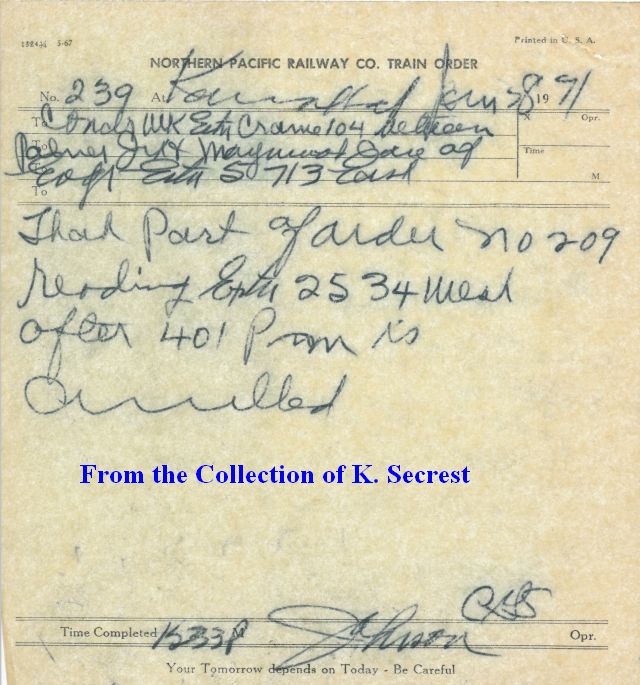 13244½ 5-67 Printed in U. S. A.
NORTHERN PACIFIC RAILWAY CO. TRAIN ORDER
No. 239 At 28 19 71
To C Wk Extra Crane 104 between X Opr.
To Palmer Jct & Maywood care of Time
Extra 5713 East M
To
That Part of order no 209
reading Extra 2534 West
after 401 Pm is
annulled
From the Collection of K. Secrest
CHS
Time Completed 1233P M Johnson Opr.
Your Tomorrow depends on Today - Be Careful